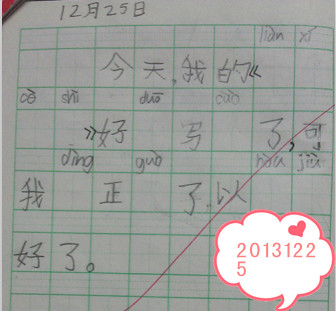 12月25日
liàn xí
今天,我的《
cè shì duō cāo
》好 写 了,可
dìng guò hòu jiù
我 正 了.以
好了。
2013122
5